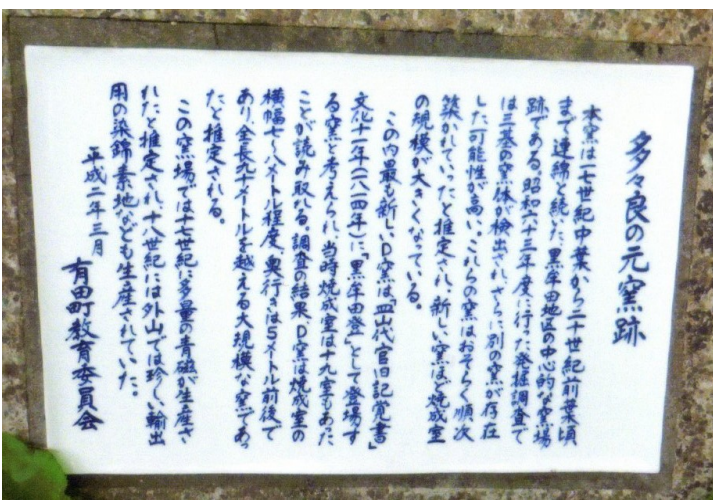 多々良の元窯跡
本窯は一七世紀中葉から二十世紀前葉頃
まで連綿と続いた、黒牟田地区の中心的な窯場
跡である。昭和六十三年度に行った発掘調査で
は三基の窯体が検出され、さらに別の窯が存在
した可能性が高い。これらの窯はおそらく順次
築かれていったと推定され、新しい窯ほど焼成室
の規模が大きくなっている。
この内最も新しいD窯は、「皿山代官旧記覚書」
文化十一年(一八一四年)に、「黒牟田登」として登場す
る窯と考えられ、当時焼成室は十九室であった
ことが読み取れる。調査の結果、D窯は焼成室の
横幅七〜八メートル程度、奥行きは5メートル前後で
あり、全長九十メートルを越える大規模な窯であっ
たと推定される。
この窯場では十七世紀に多量の青磁が生産さ
れたと推定され、十八世紀には外山では珍しい輸出
用の染錦素地なども生産されていた。
平成二年三月
有田町教育委員会